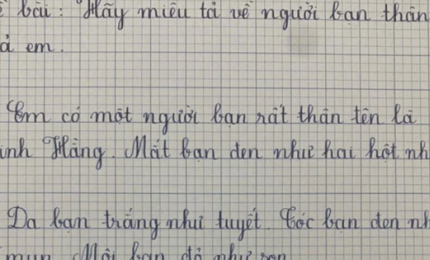 bài: "Hãy miêu tả về người bạn thân
ả em.
Em có một người bạn rất thân tên là
inh Hằng. Mắt bạn đen như hai hột nh
Da bạn trắng như tuyết. Tóc bạn đen nh
mun. Môi bạn đỏ như son